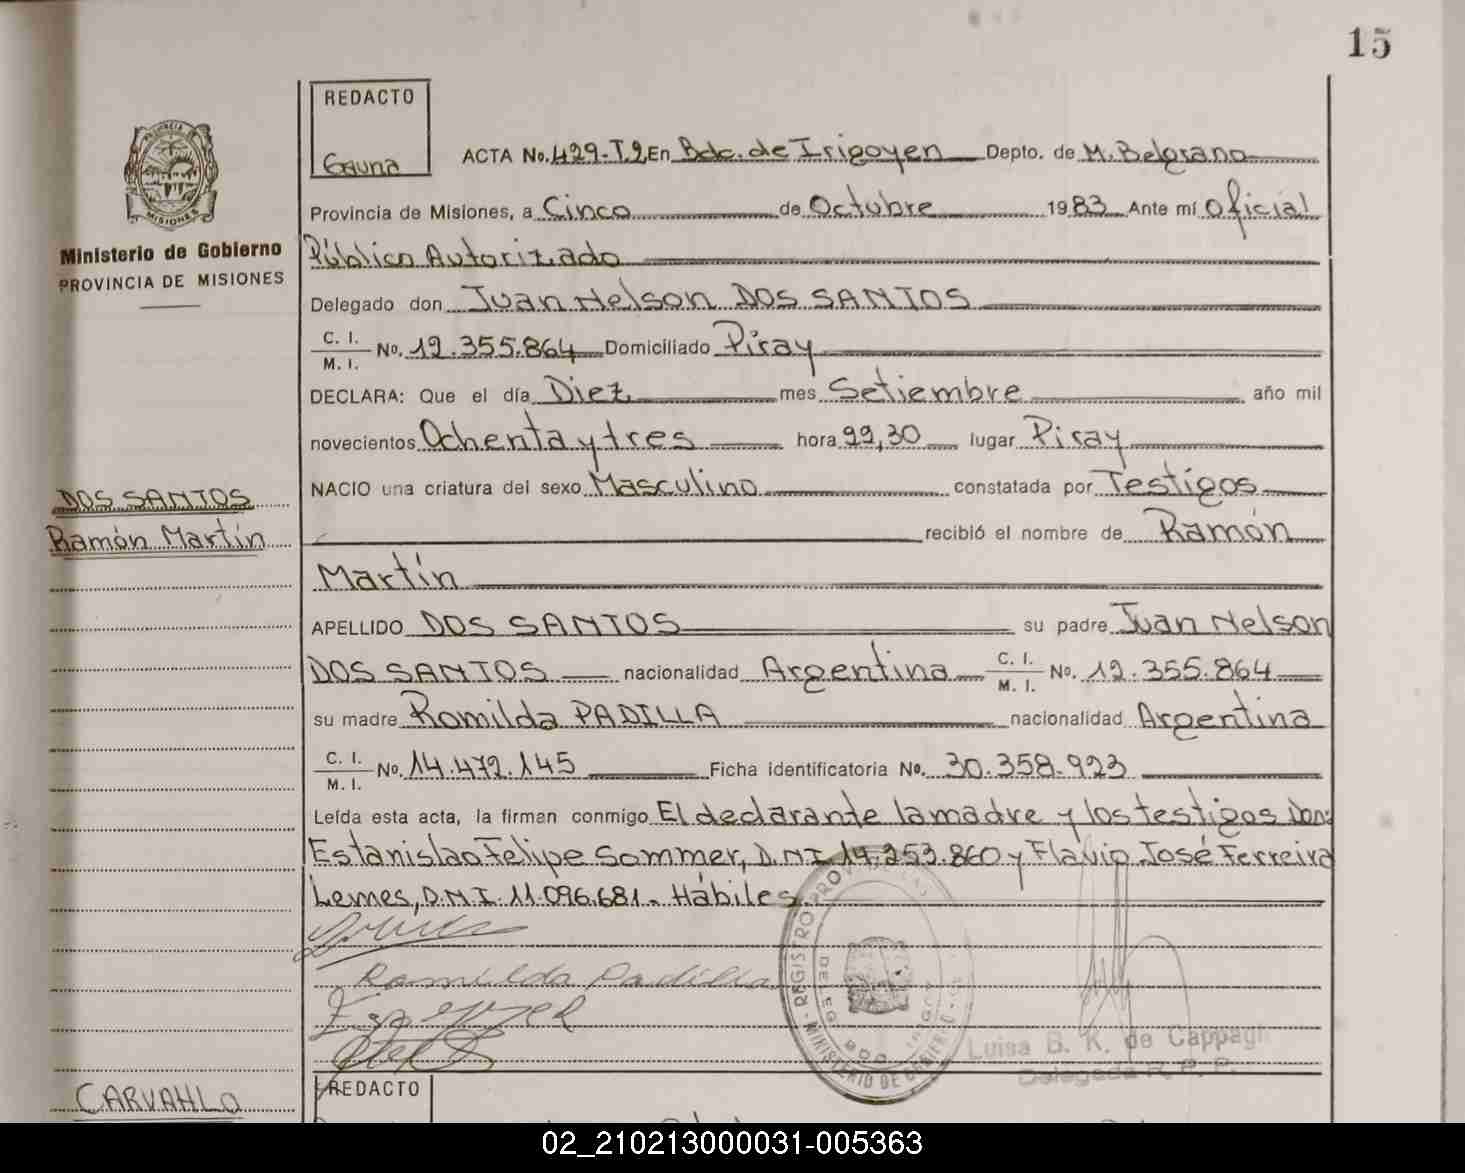 15
REDACTO
Gauna
ACTA No. 429-T.2 En Bdo. de Irigoyen Depto. de M. Belgrano
Provincia de Misiones, a Cinco de Octubre 1983 Ante mí Oficial
Público Autorizado
Ministerio de Gobierno
PROVINCIA DE MISIONES
Delegado don Juan Nelson DOS SANTOS
C. I.
M. I. No. 12.355.864 Domiciliado Piray
DECLARA: Que el día Diez mes Setiembre año mil
novecientos Ochenta y tres hora 22,30 lugar Piray
NACIO una criatura del sexo Masculino constatada por Testigos
DOS SANTOS
Ramón Martín
recibió el nombre de Ramón
Martín
APELLIDO DOS SANTOS su padre Juan Nelson
DOS SANTOS nacionalidad Argentina C. I. M. I. No. 12.355.864
su madre Romilda PADILLA nacionalidad Argentina
C. I.
M. I. No. 14.472.145 Ficha identificatoria No. 30.358.923
Leída esta acta, la firman conmigo El declarante la madre y los testigos Don:
Estanislao Felipe Sommer, D.N.I. 14.253.860 y Flavio José Ferreira
Lemes, D.N.I. 11.096.681. Hábiles
Romilda Padilla
REGISTRO PROV. DE LAS
MINISTERIO DE GOBIERNO
Luisa B. K. de Cappagli
Delegada R. P. P.
CARVAHLO
REDACTO
02_210213000031-005363